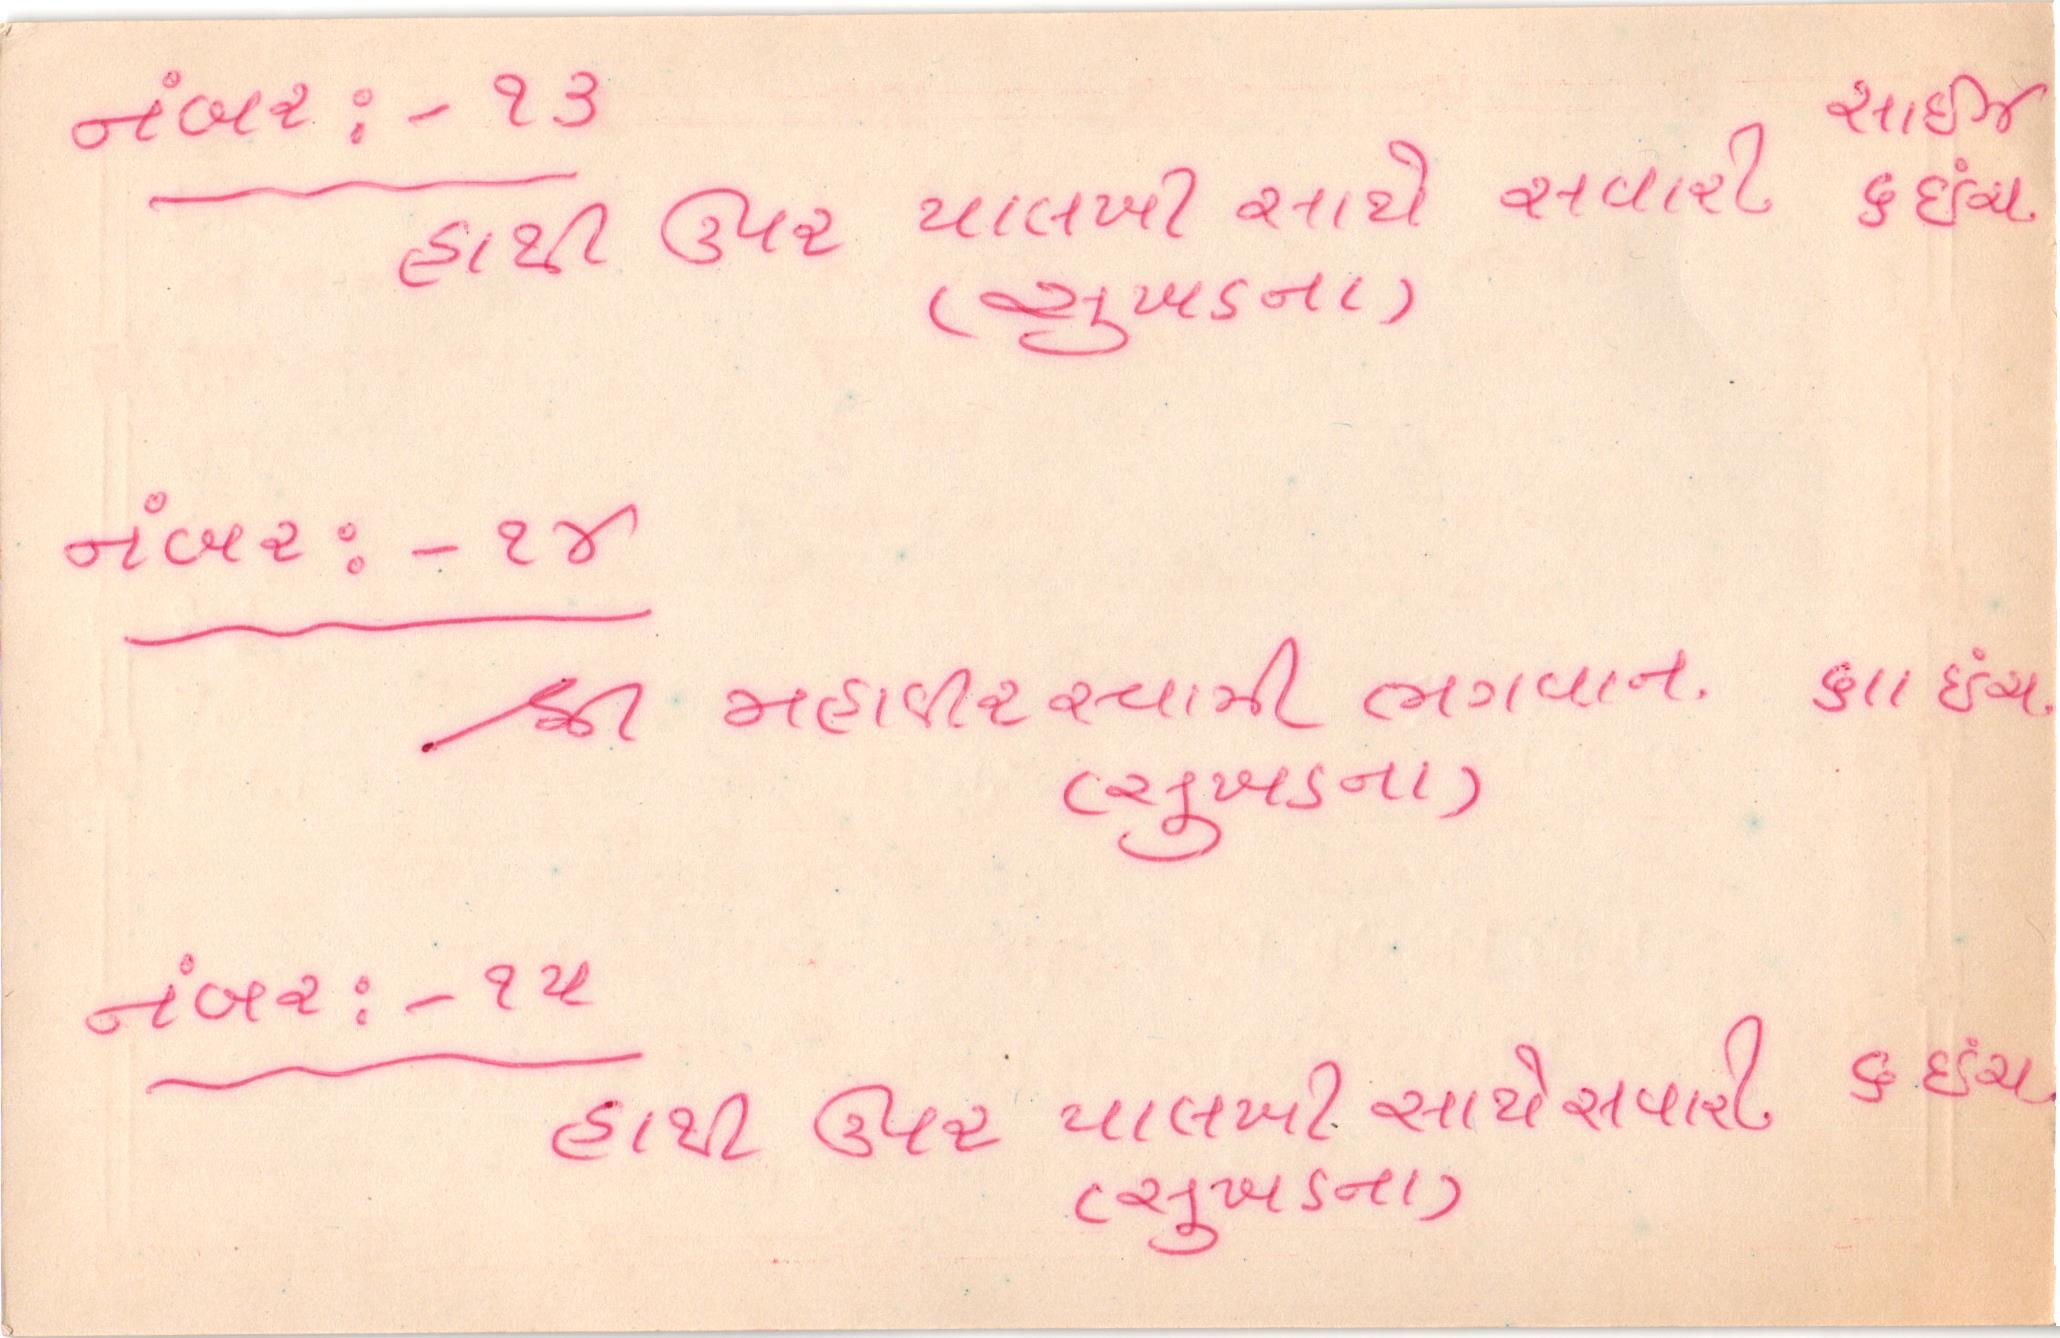 નંબર :- ૧૩
સાઈજ
હાથી ઉપર પાલખી સાથે સવારી ૬ ઇંચ.
(સુખડના)
નંબર :- ૧૪
શ્રી મહાવીર સ્વામી ભગવાન. ૬ાા ઇંચ.
(સુખડના)
નંબર :- ૧૫
હાથી ઉપર પાલખી સાથે સવારી ૬ ઇંચ.
(સુખડના)